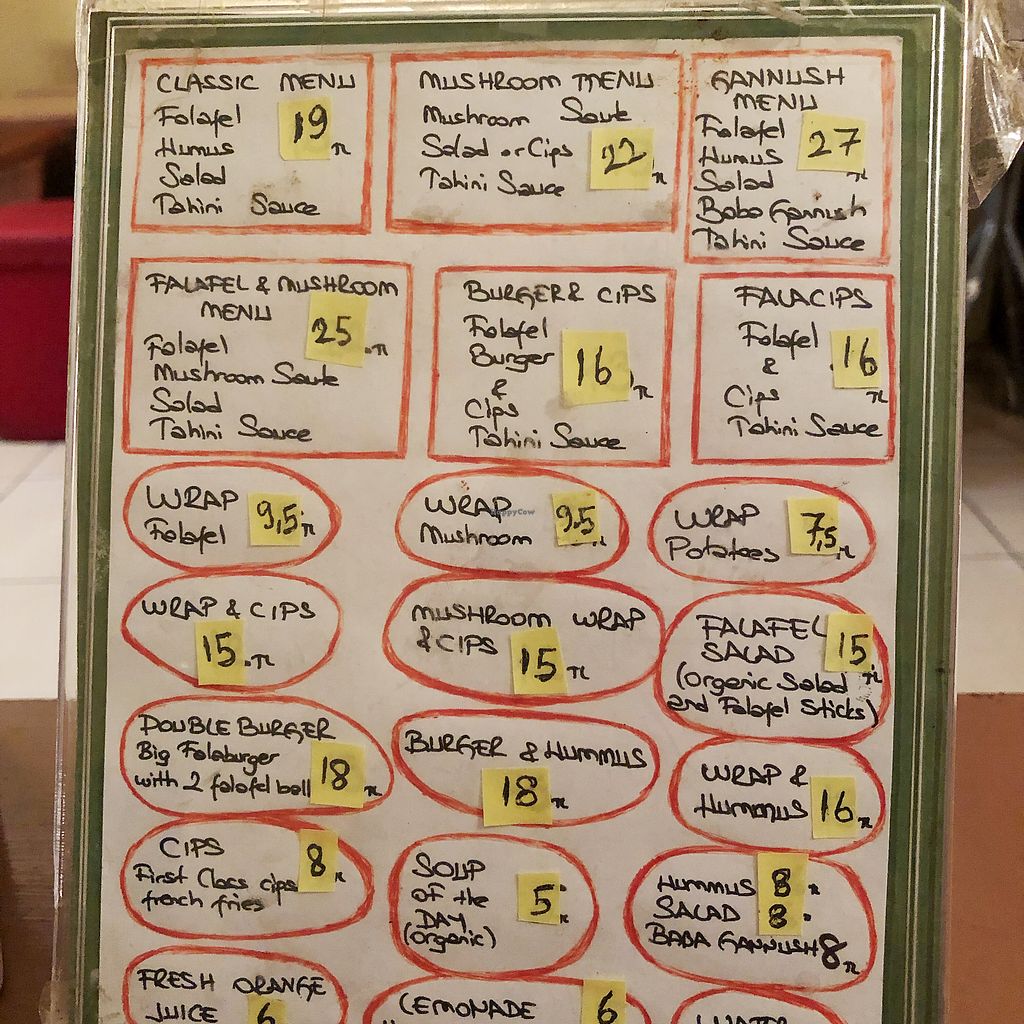 CLASSIC MENU
Falafel
Humus
Salad
Tahini Sauce
19 TL
MUSHROOM MENU
Mushroom Saute
Salad or Cips
Tahini Sauce
22 TL
GANNUSH
MENU
Falafel
Humus
Salad
Baba Gannush
Tahini Sauce
27 TL
FALAFEL & MUSHROOM
MENU
Falafel
Mushroom Saute
Salad
Tahini Sauce
25 TL
BURGER & CIPS
Falafel
Burger
&
Cips
Tahini Sauce
16 TL
FALACIPS
Falafel
&
Cips
Tahini Sauce
16 TL
WRAP
Falafel
9,5 TL
WRAP
Mushroom
9,5 TL
HappyCow
WRAP
Potatoes
7,5 TL
WRAP & CIPS
15 TL
MUSHROOM WRAP
& CIPS
15 TL
FALAFEL
SALAD
(Organic Salad
and Falafel Sticks)
15 TL
DOUBLE BURGER
Big Falaburger
with 2 falafel ball
18 TL
BURGER & HUMMUS
18 TL
WRAP &
HUMMUS
16 TL
CIPS
First Class cips
french fries
8 TL
SOUP
of the
DAY
(organic)
5 TL
HUMMUS 8 TL
SALAD 8
BABA GANNUSH 8 TL
FRESH ORANGE
JUICE 6
LEMONADE 6
WATER